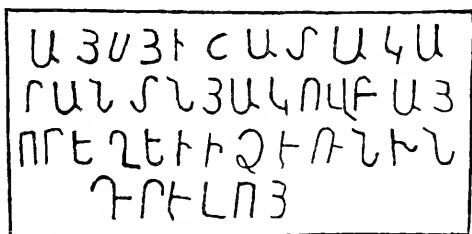 ԱՅՍ ՅԻՇԱՏԱԿԱ
ՐԱՆ ՏՆ ՅԱԿՈՎԲԱՅ
ՈՐ ԵՂԵՒ Ի ՁԻՌՆ ԻՆ
ԴՐԻԼՈՅ